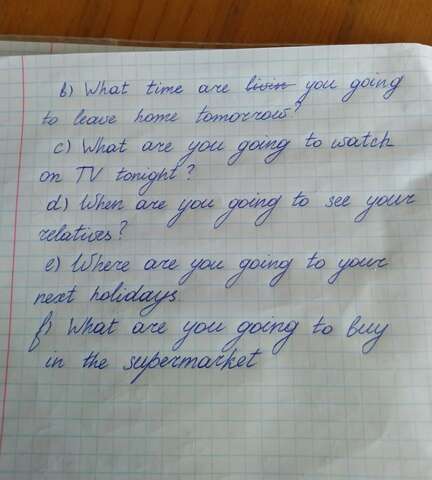 b) What time are livin you going
to leave home tomorrow?
c) What are you going to watch
on TV tonight?
d) When are you going to see your
relatives?
e) Where are you going to your
next holidays
f) What are you going to buy
in the supermarket